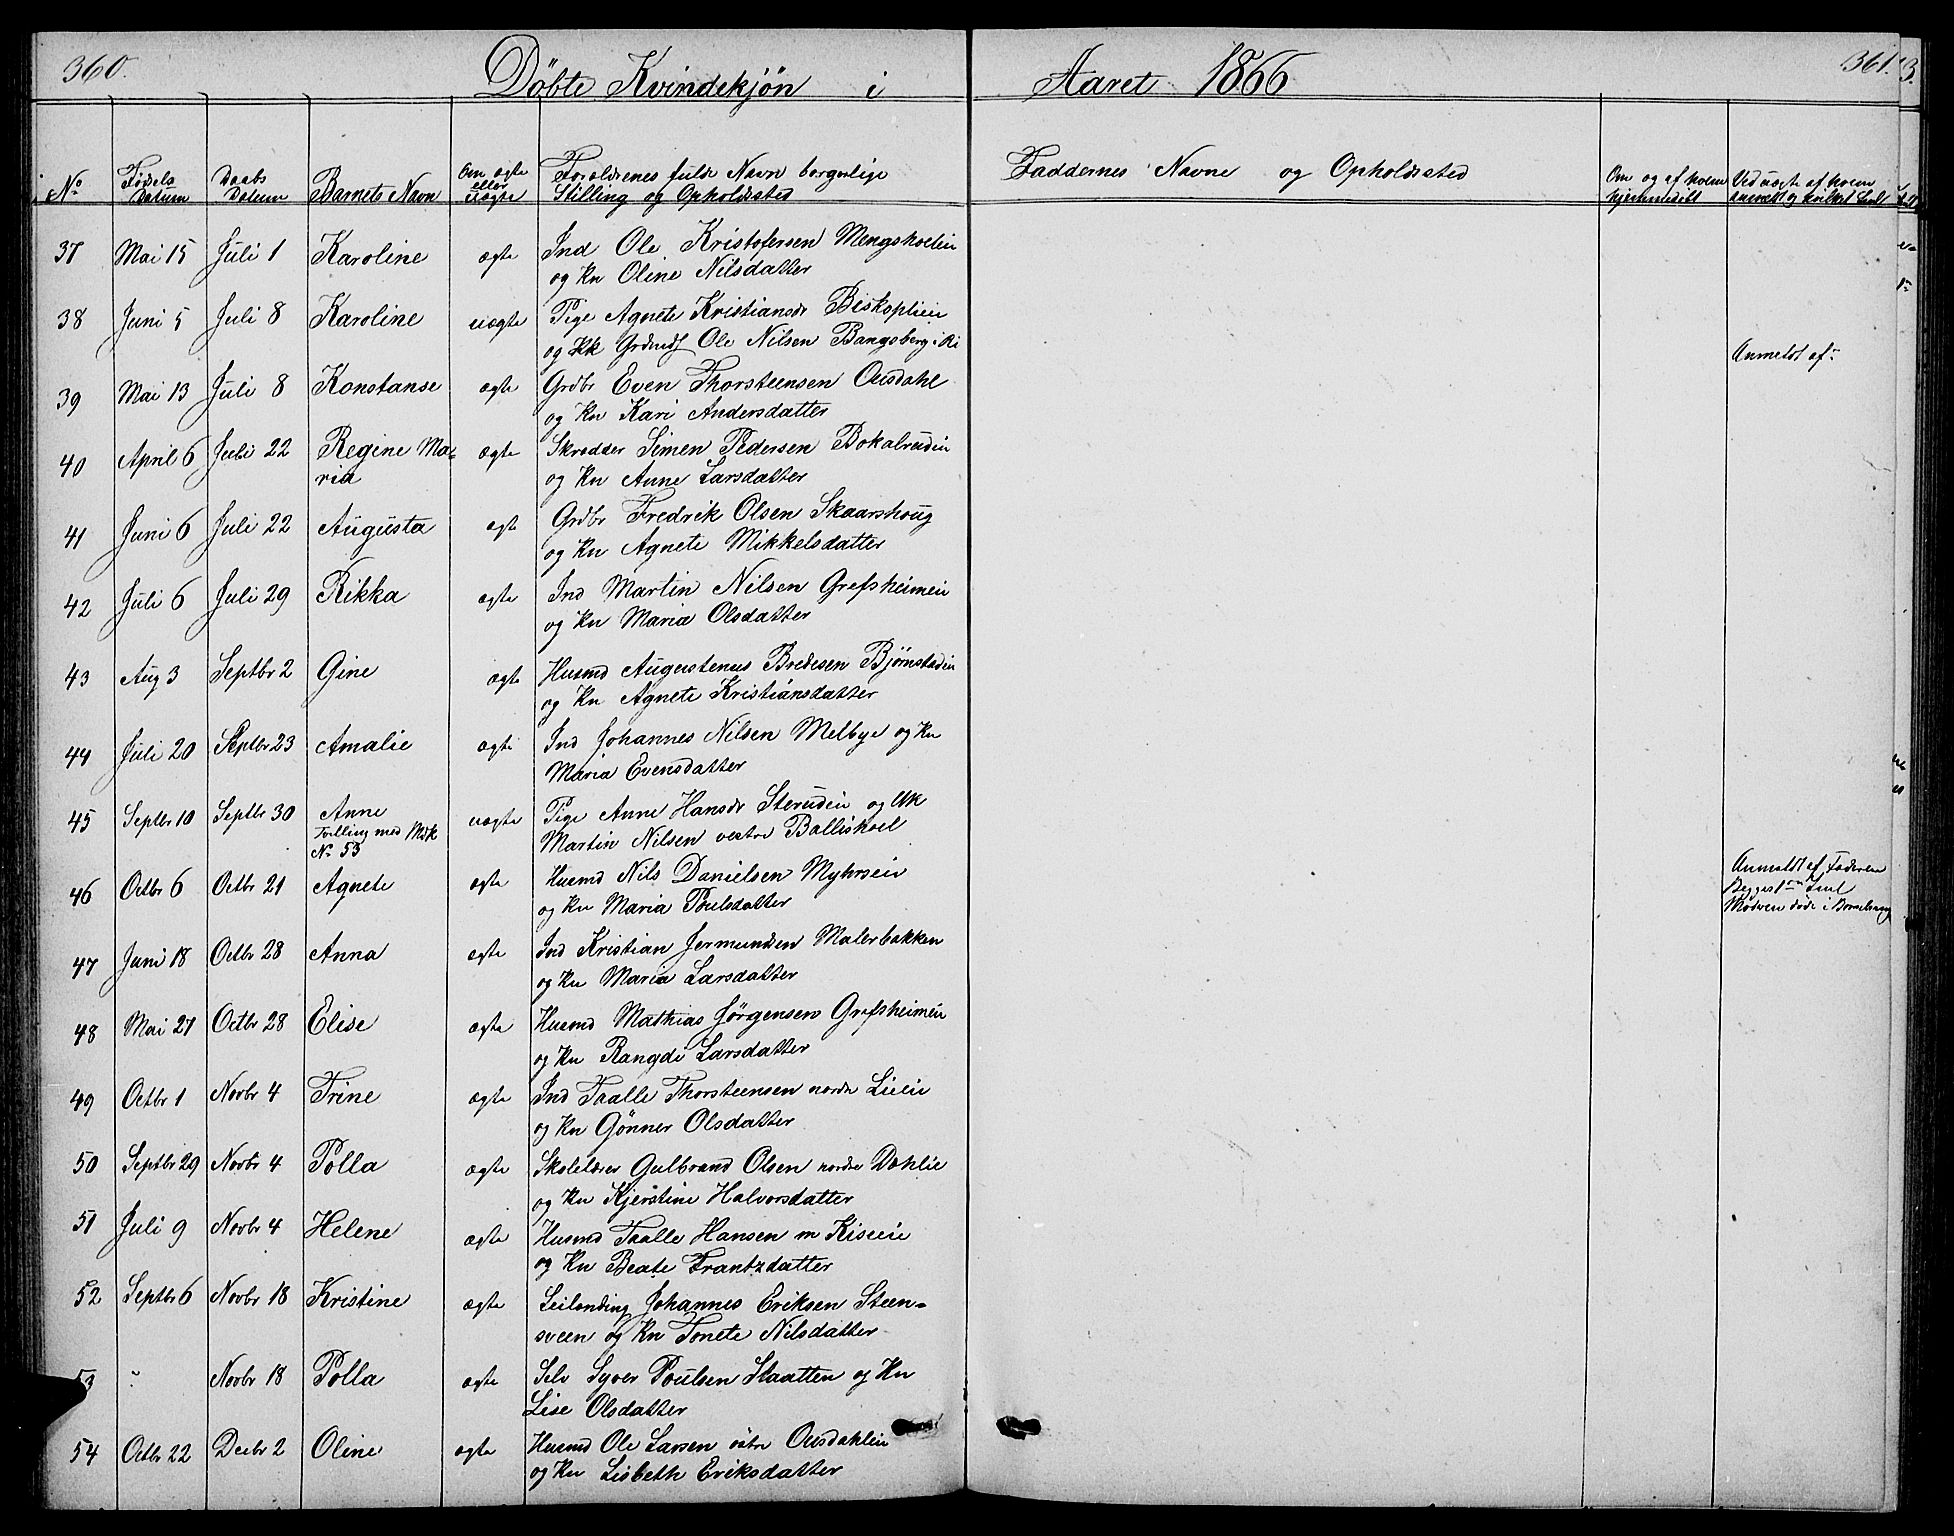 360.
Döbte Kvindekjön i
Aaret 1866
361.
No
Födsels Datum
Daabs Datum
Barnets Navn
Om ægte eller uægte
Forældrenes fulde Navn borgerlige Stilling og Opholdssted
Faddernes Navne og Opholdssted
Om og af hvem hjemmedöbt
Ved uægte af hvem anmeldt og hvilket Leil
37 Mai 15 Juli 1 Karoline ægte Ind Ole Kristofersen Mengshoelen
og Kn Oline Nilsdatter
38 Juni 5 Juli 8 Karoline uægte Pige Agnete Kristiansdr Biskoplien
og Ole Nilsen Bangsberg i Ri
Anmeldt af:
39 Mai 13 Juli 8 Konstanse ægte Grdbr Even Thorsteensen Ousdahl
og Kn Kari Andersdatter
40 April 6 Juli 22 Regine Ma-
ria ægte Skrædder Simen Pedersen Bokalrudin
og Kn Anne Larsdatter
41 Juni 6 Juli 22 Augusta ægte Grdbr Fredrik Olsen Skaarshoug
og Kn Agnete Mikkelsdatter
42 Juli 6 Juli 29 Rikka ægte Ind Martin Nilsen Grefsheimein
og Kn Maria Olsdatter
43 Aug 3 Septbr 2 Gine ægte Husmd Augustenus Bredesen Bjørnstadein
og Kn Agnete Kristiansdatter
44 Juli 20 Septbr 23 Amalie ægte Ind Johannes Nilsen Melbye og Kn
Maria Evensdatter
45 Septbr 10 Septbr 30 Anne
Tvilling med Mdk
No 53 uægte Pige Anne Hansdr Sterudin og Uk
Martin Nilsen vestre Ballishoel
Anmeldt af Faderen
Begges 1ste Leil
Moderen døde i Barselseng
46 Octbr 6 Octbr 21 Agnete ægte Husmd Nils Danielsen Myhrsein
og Kn Maria Poulsdatter
47 Juni 18 Octbr 28 Anna ægte Ind Kristian Jermundsen Malerbakken
og Kn Maria Larsdatter
48 Mai 27 Octbr 28 Elise ægte Husmd Mathias Jørgensen Grefsheimein
og Kn Rangdi Larsdatter
49 Octbr 1 Novbr 4 Trine ægte Ind Taalle Thorsteensen nordre Lieein
og Kn Gönner Olsdatter
50 Septbr 29 Novbr 4 Polla ægte Skolelærer Gulbrand Olsen nordre Dæhlie
og Kn Kjerstine Halvorsdatter
51 Juli 9 Novbr 4 Helene ægte Husmd Taalle Hansen m Kiseie
og Kn Beate Frantzdatter
52 Septbr 6 Novbr 18 Kristine ægte Leilending Johannes Eriksen Steen-
sveen og Kn Tonete Nilsdatter
53 " Novbr 18 Polla ægte Selv Syver Poulsen Slaatten og Kn
Lise Olsdatter
54 Octbr 22 Decbr 2 Oline ægte Husmd Ole Larsen østre Ousdahlein
og Kn Lisbeth Eriksdatter